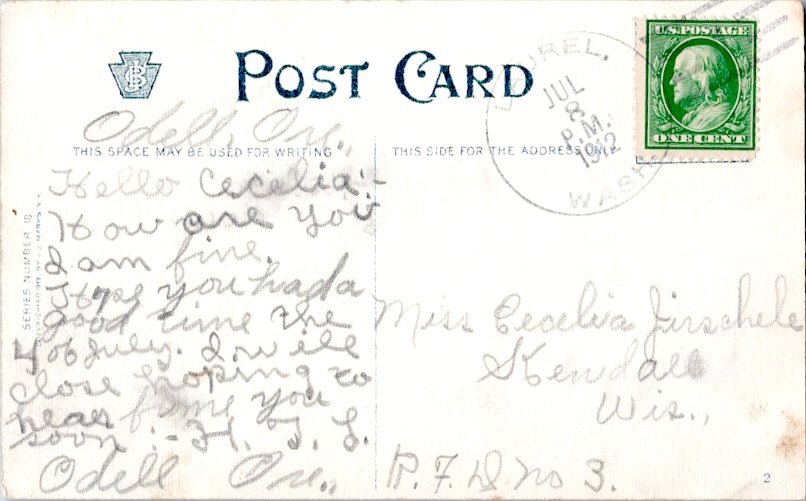 POST CARD
U.S. POSTAGE
ONE CENT
LAUREL.
JUL
8
P.M.
1912
WASH.
THIS SPACE MAY BE USED FOR WRITING
THIS SIDE FOR THE ADDRESS ONLY
Odell, Ore.,
Hello Cecelia:-
How are you
I am fine.
Hope you had a
good time the
4 of July. I will
close hoping to
hear from you
soon. - H. T. L.
Odell Ore.,
Miss Cecelia Jirschele
Kendall
Wis.,
R. F. D. no 3.
SERIES NUMBER 18
2